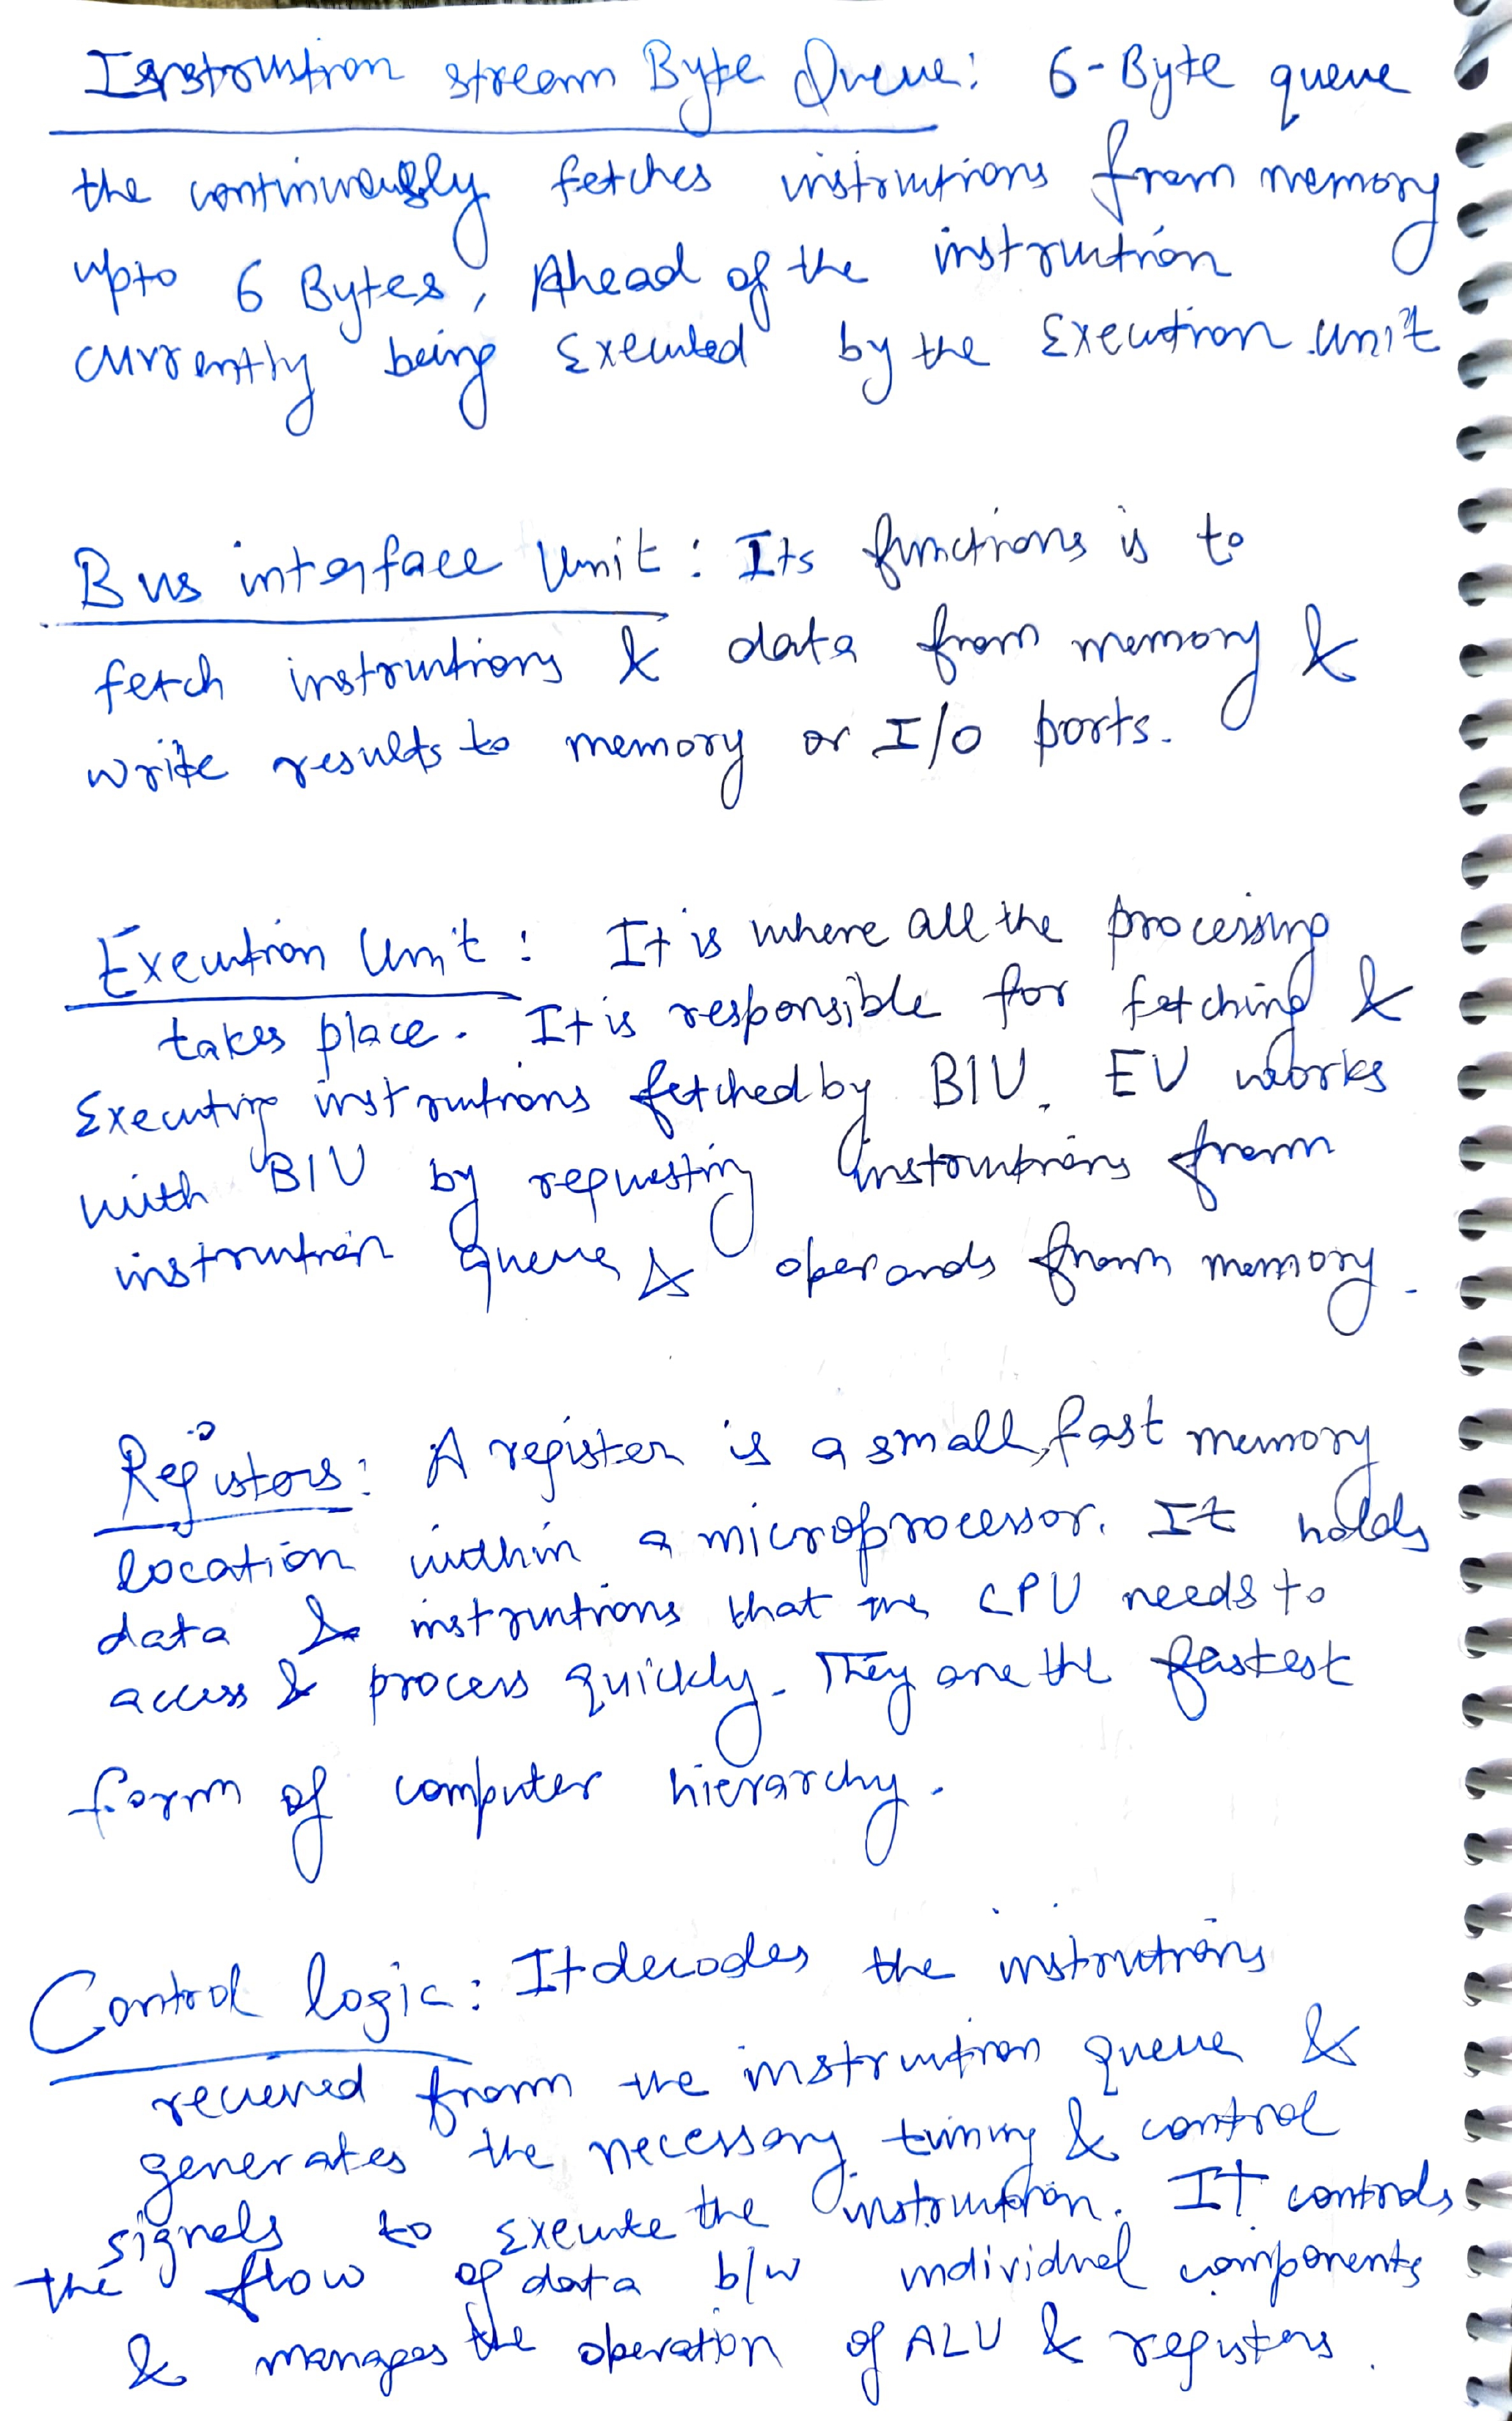 Instruction stream Byte Queue: 6-Byte queue
the continuously fetches instructions from memory
upto 6 Bytes, Ahead of the instruction
currently being Executed by the Execution unit
Bus interface Unit: Its functions is to
fetch instructions & data from memory &
write results to memory or I/O ports.
Execution Unit: It is where all the processing
takes place. It is responsible for fetching &
Executing instructions fetched by BIU. EU works
with BIU by requesting instructions from
instruction queue & operands from memory.
Registors: A register is a small, fast memory
location within a microprocessor. It holds
data & instructions that the CPU needs to
access & process quickly. They are the fastest
form of computer hierarchy.
Control logic: It decodes the instructions
recieved from the instruction queue &
generates the necessary timing & control
signals to Execute the instruction. It controls
the flow of data b/w individual components
& manages the operation of ALU & registers.